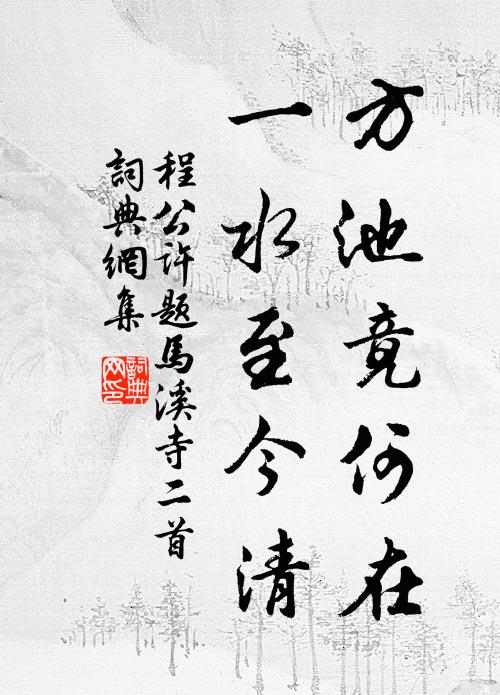 方池竟何在
一水至今清
程公许题馬溪寺二首
詞典網集
詞典
网印